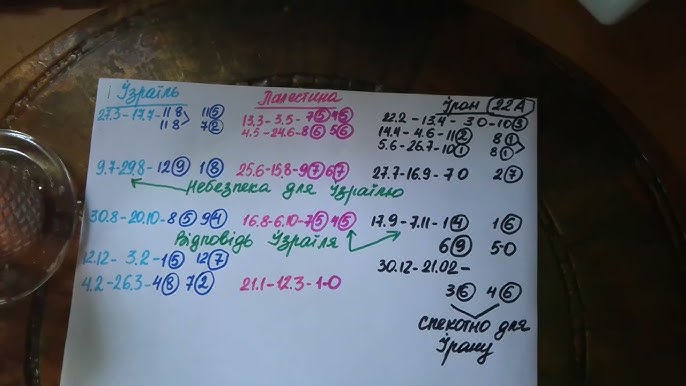 Ізраїль
27.3-17.7-11 8 11⑤
11 8 7②
9.7-29.8-12⑨ 1⑧
Палестина
13.3-3.5-7⑤ 4⑤
4.5-24.6-8⑥ 5⑥
25.6-15.8-9⑦ 6⑦
Іран 22А
22.2-13.4-3 0-10③
14.4-4.6-11② 8①
5.6-26.7-10① 8①
27.7-16.9-7 0 2⑦
Небезпека для Ізраїлю
30.8-20.10-8⑤ 9④
16.8-6.10-7⑤ 4⑤
17.9-7.11-1④ 1⑥
6⑨ 5-0
Відповідь Ізраїля
12.12-3.2-1⑤ 12⑦
4.2-26.3-4⑧ 7②
21.1-12.3-1-0
30.12-21.02-
3⑥ 4⑥
спекотно для
Ірану